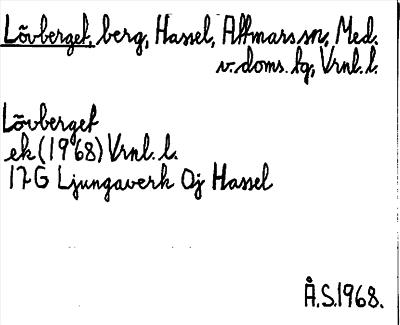 Lövberget, berg, Hassel, Attmars sn, Med.
v. doms. tg, Vrnl. l.
Lövberget
ek (1968) Vrnl. l.
17G Ljungaverk Oj Hassel
Å.S. 1968.